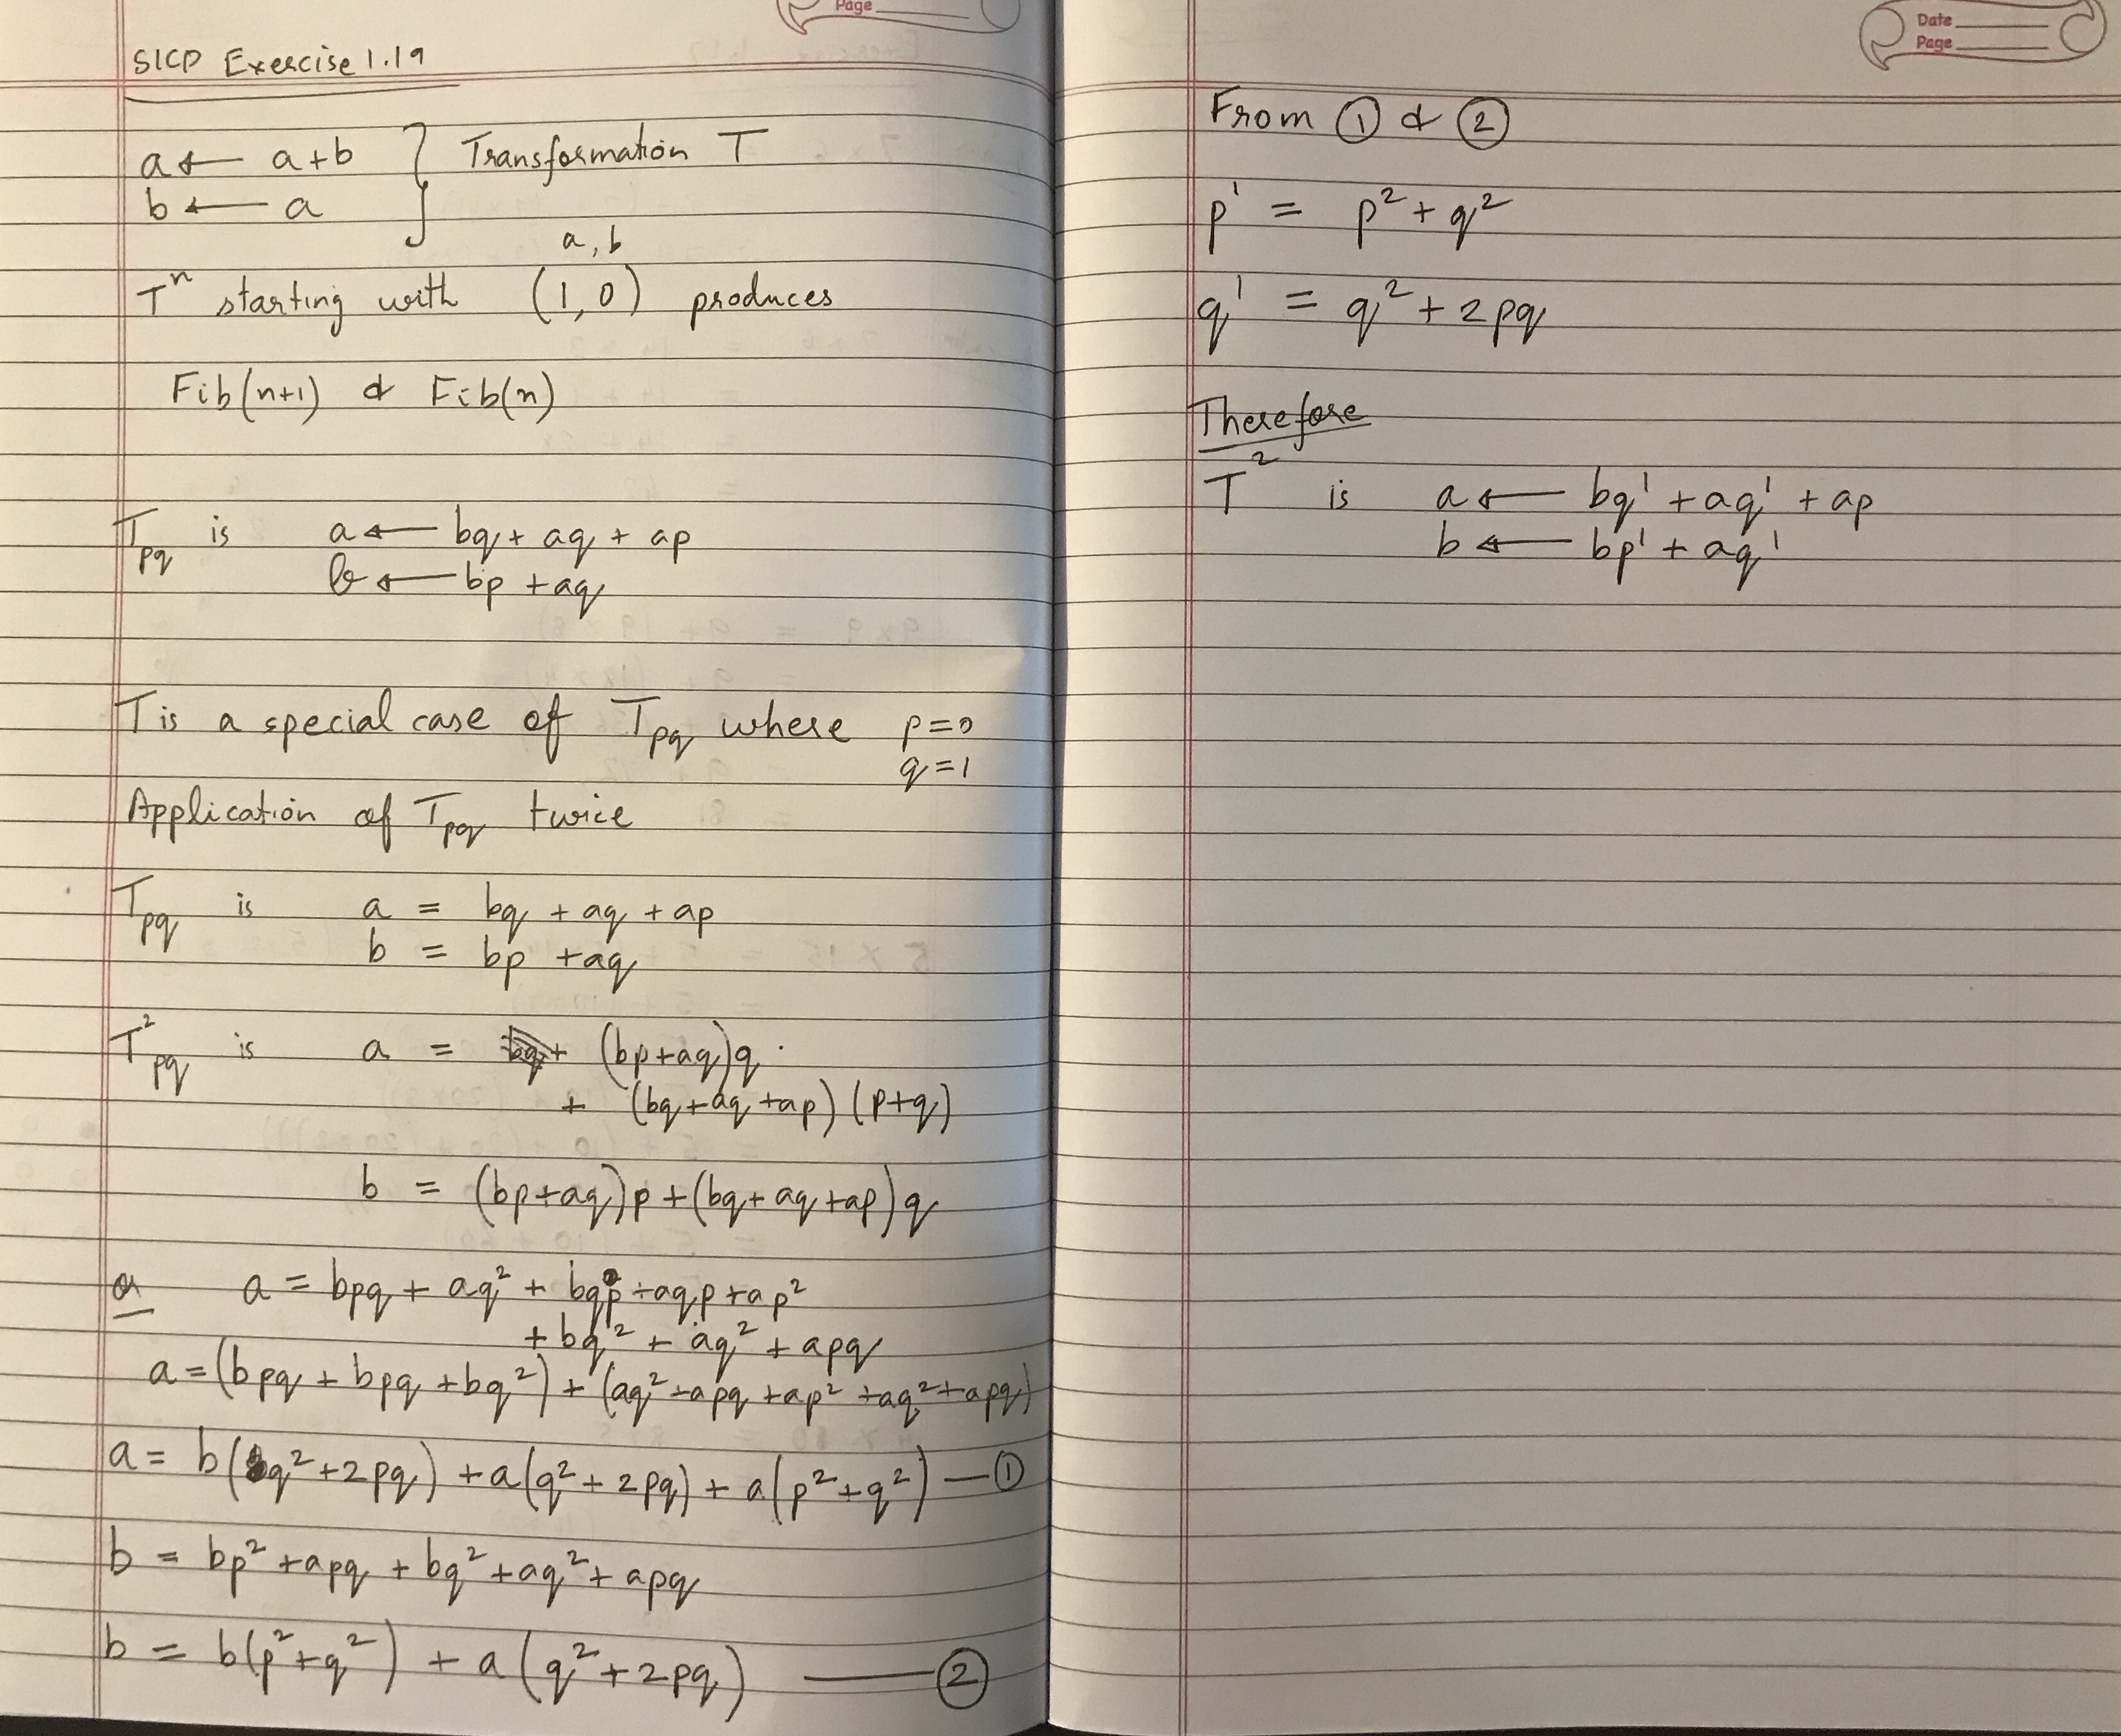 Page
SICP Exercise 1.19
a ← a+b } Transformation T
b ← a
a, b
Tⁿ starting with (1, 0) produces
Fib(n+1) & Fib(n)
T_pq is a ← bq + aq + ap
b ← bp + aq
T is a special case of T_pq where p=0
q=1
Application of T_pq twice
T_pq is a = bq + aq + ap
b = bp + aq
T²_pq is a = (bp+aq)q
+ (bq+aq+ap) (p+q)
b = (bp+aq)p + (bq+aq+ap)q
a a = bpq + aq² + bqp + aqp + ap²
+ bq² + aq² + apq
a = (bpq + bpq + bq²) + (aq² + apq + ap² + aq² + apq)
a = b(q² + 2pq) + a(q² + 2pq) + a(p² + q²) — ①
b = bp² + apq + bq² + aq² + apq
b = b(p² + q²) + a(q² + 2pq) — ②
Date
Page
From ① & ②
p' = p² + q²
q' = q² + 2pq
Therefore
T² is a ← bq' + aq' + ap
b ← bp' + aq'